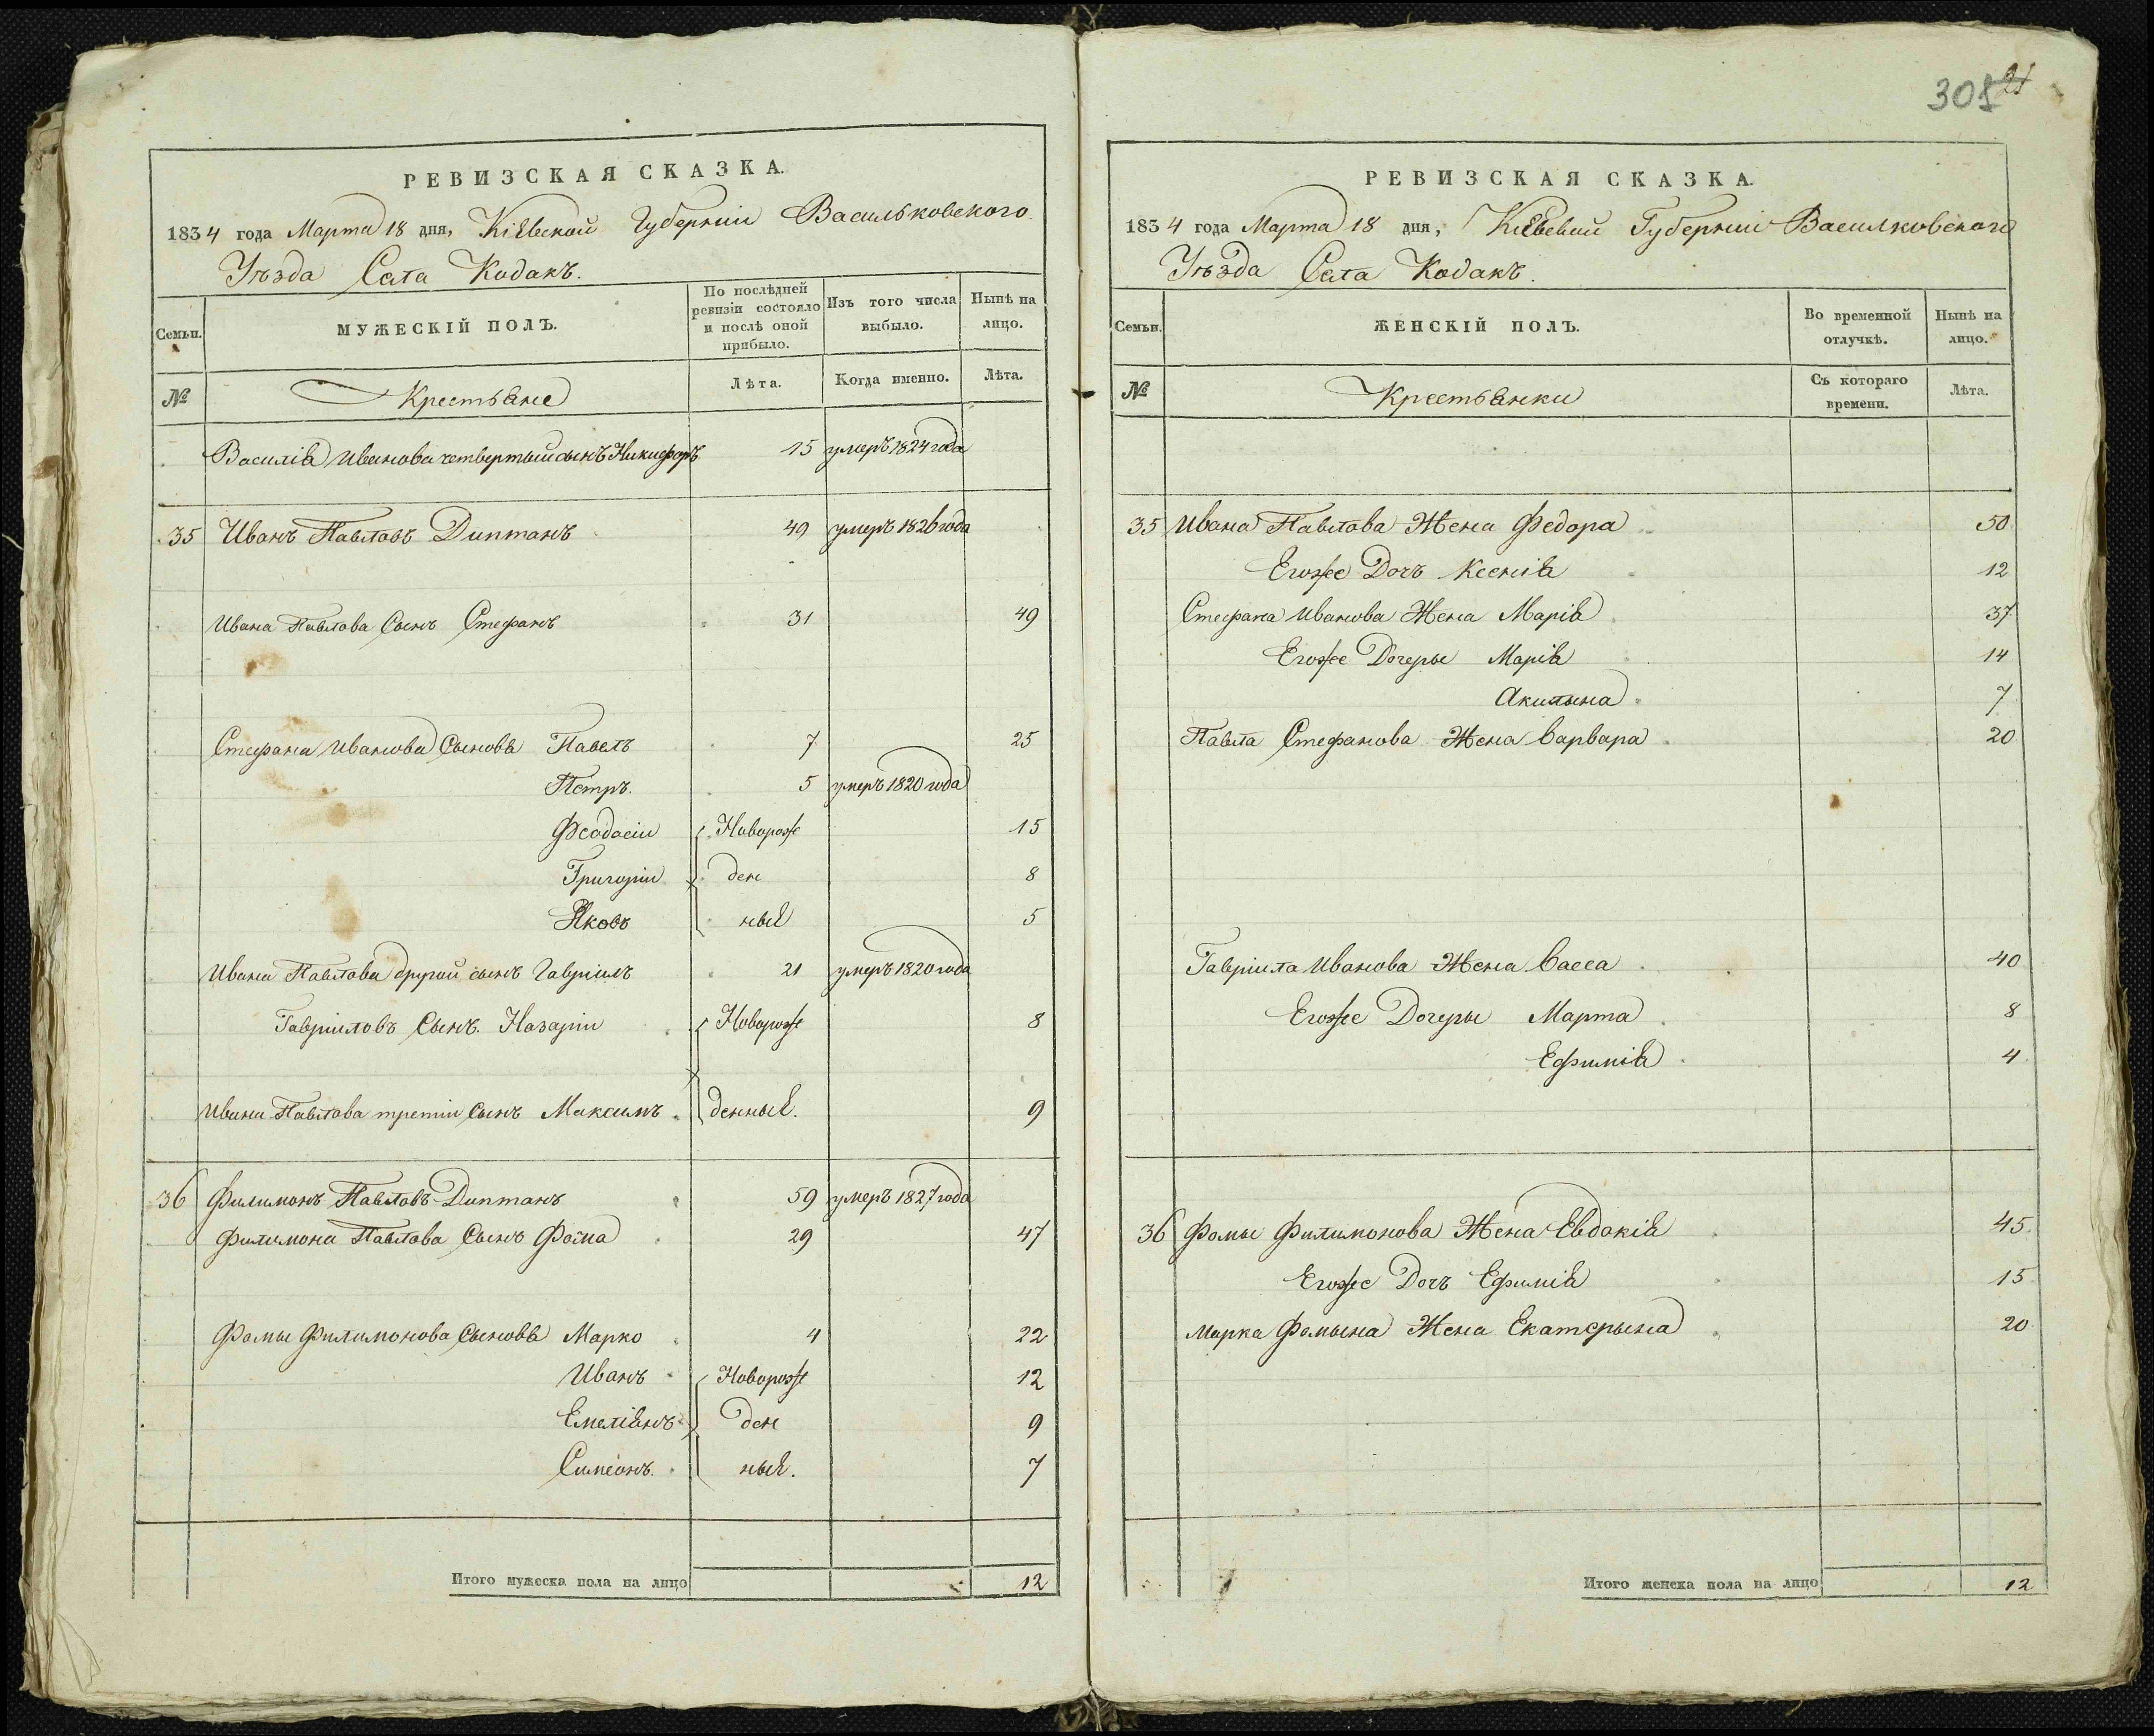 308 21
РЕВИЗСКАЯ СКАЗКА.
1834 года Марта 18 дня, Кіевской Губерніи Васильковского
Уѣзда Села Кодакъ.
Семьи.
МУЖЕСКІЙ ПОЛЪ.
По послѣдней ревизіи состояло и послѣ оной прибыло.
Изъ того числа выбыло.
Нынѣ на лицо.
№
Крестьяне
Лѣта.
Когда именно.
Лѣта.
Василія Иванова четвертый сынъ Никифоръ 15 умеръ 1824 года
35 Иванъ Павловъ Диптанъ 49 умеръ 1826 года
Ивана Павлова Сынъ Стефанъ 31 49
Стефана Иванова Сыновя Павелъ 7 25
Петръ. 5 умеръ 1820 года
Феодосіи Новорож 15
Григоріи ден 8
Яковъ ные 5
Ивана Павлова другой сынъ Гавріилъ 21 умеръ 1820 года
Гавріиловъ Сынъ. Назаріи Новорож 8
Ивана Павлова третіи Сынъ Максимъ денные. 9
36 Филимонъ Павловъ Диптанъ 59 умеръ 1827 года
Филимона Павлова Сынъ Фома 29 47
Фомы Филимонова Сыновя Марко 4 22
Иванъ Новорож 12
Емеліянъ ден 9
Симеонъ. ные. 7
Итого мужеска пола на лицо 12
РЕВИЗСКАЯ СКАЗКА.
1834 года Марта 18 дня, Кіевской Губерніи Василковского
Уѣзда Села Кодакъ.
Семьи.
ЖЕНСКІЙ ПОЛЪ.
Во временной отлучкѣ.
Нынѣ на лицо.
№
Крестьянки
Съ котораго времени.
Лѣта.
35 Ивана Павлова Жена Федора 50
Егоже Дочъ Ксенія 12
Стефана Иванова Жена Марія 37
Егоже Дочеры Марія 14
Акилына 7
Павла Стефанова Жена Варвара 20
Гавріила Иванова Жена Васса 40
Егоже Дочеры Марта 8
Ефимія 4
36 Фомы Филимонова Жена Евдокія 45
Егоже Дочъ Ефимія 15
Марка Фомына Жена Екатерына 20
Итого женска пола на лицо 12